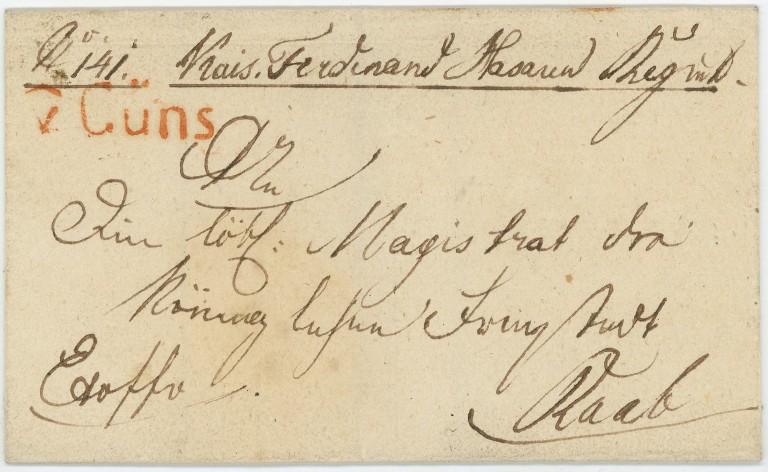 No. 141. Kais. Ferdinand Husaren Regim̅t.
v Güns
An
Ein löbl: Magistrat der
königlichen Freystadt
Exoffo. Raab